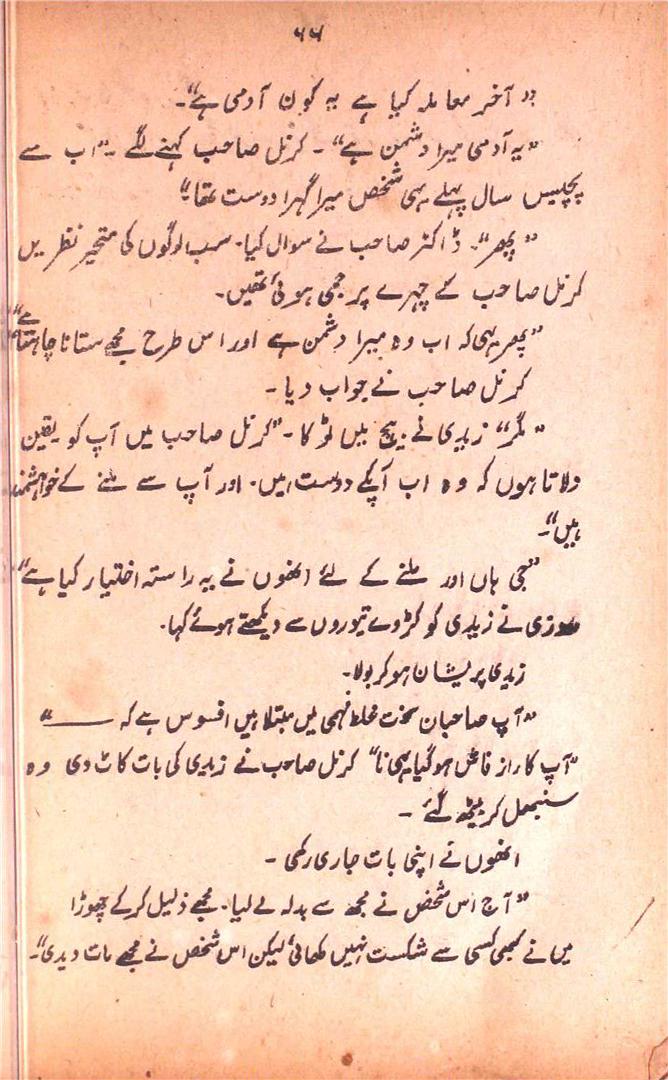 ۶۶
"آخر معاملہ کیا ہے یہ کون آدمی ہے"۔
"یہ آدمی میرا دشمن ہے"۔ کرنل صاحب کہنے لگے۔ "اب سے
پچیس سال پہلے یہی شخص میرا گہرا دوست تھا"
"پھر"۔ ڈاکٹر صاحب نے سوال کیا۔ سب لوگوں کی متحیر نظریں
کرنل صاحب کے چہرے پر جمی ہوئی تھیں۔
"پھر یہی کہ اب وہ میرا دشمن ہے اور اس طرح مجھے ستانا چاہتا ہے"
کرنل صاحب نے جواب دیا۔
"مگر" زیدی نے بیچ میں ٹوکا۔ "کرنل صاحب میں آپ کو یقین
دلاتا ہوں کہ وہ اب آپکے دوست ہیں۔ اور آپ سے ملنے کے خواہشمند
ہیں"۔
"جی ہاں اور ملنے کے لئے انھوں نے یہ راستہ اختیار کیا ہے"
روزی نے زیدی کو کڑوے تیوروں سے دیکھتے ہوئے کہا۔
زیدی پریشان ہو کر بولا۔
"آپ صاحبان سخت غلط فہمی میں مبتلا ہیں افسوس ہے کہ ——"
"آپ کا راز فاش ہو گیا یہی نا" کرنل صاحب نے زیدی کی بات کاٹ دی وہ
سنبھل کر بیٹھ گئے۔
انھوں نے اپنی بات جاری رکھی۔
"آج اس شخص نے مجھ سے بدلہ لے لیا۔ مجھے ذلیل کر کے چھوڑا
میں نے کبھی کسی سے شکست نہیں کھائی لیکن اس شخص نے مجھے مات دیدی"۔